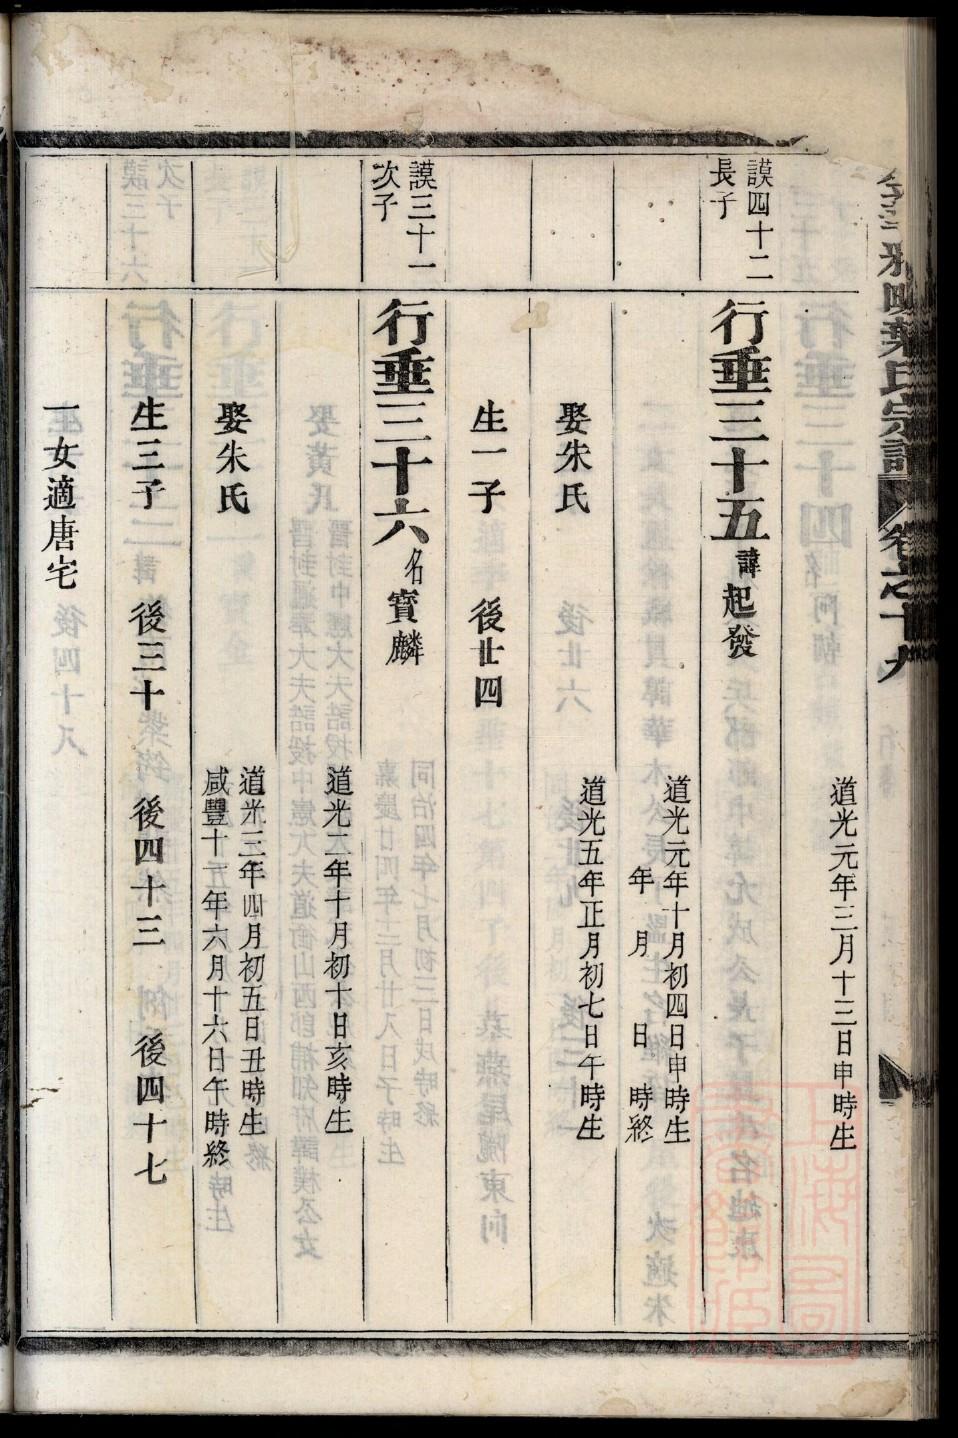 葉氏宗譜
卷之十九
道光元年三月十三日申時生
謨四十二
長子
行垂三十五 諱起發
道光元年十月初四日申時生
年 月 日 時終
娶朱氏
道光五年正月初七日午時生
生一子 後廿四
謨三十一
次子
行垂三十六 名寶麟
道光二年十月初十日亥時生
娶朱氏
道光三年四月初五日丑時生
咸豐十一年六月十六日午時終
生三子 後三十 後四十三 後四十七
一女適唐宅